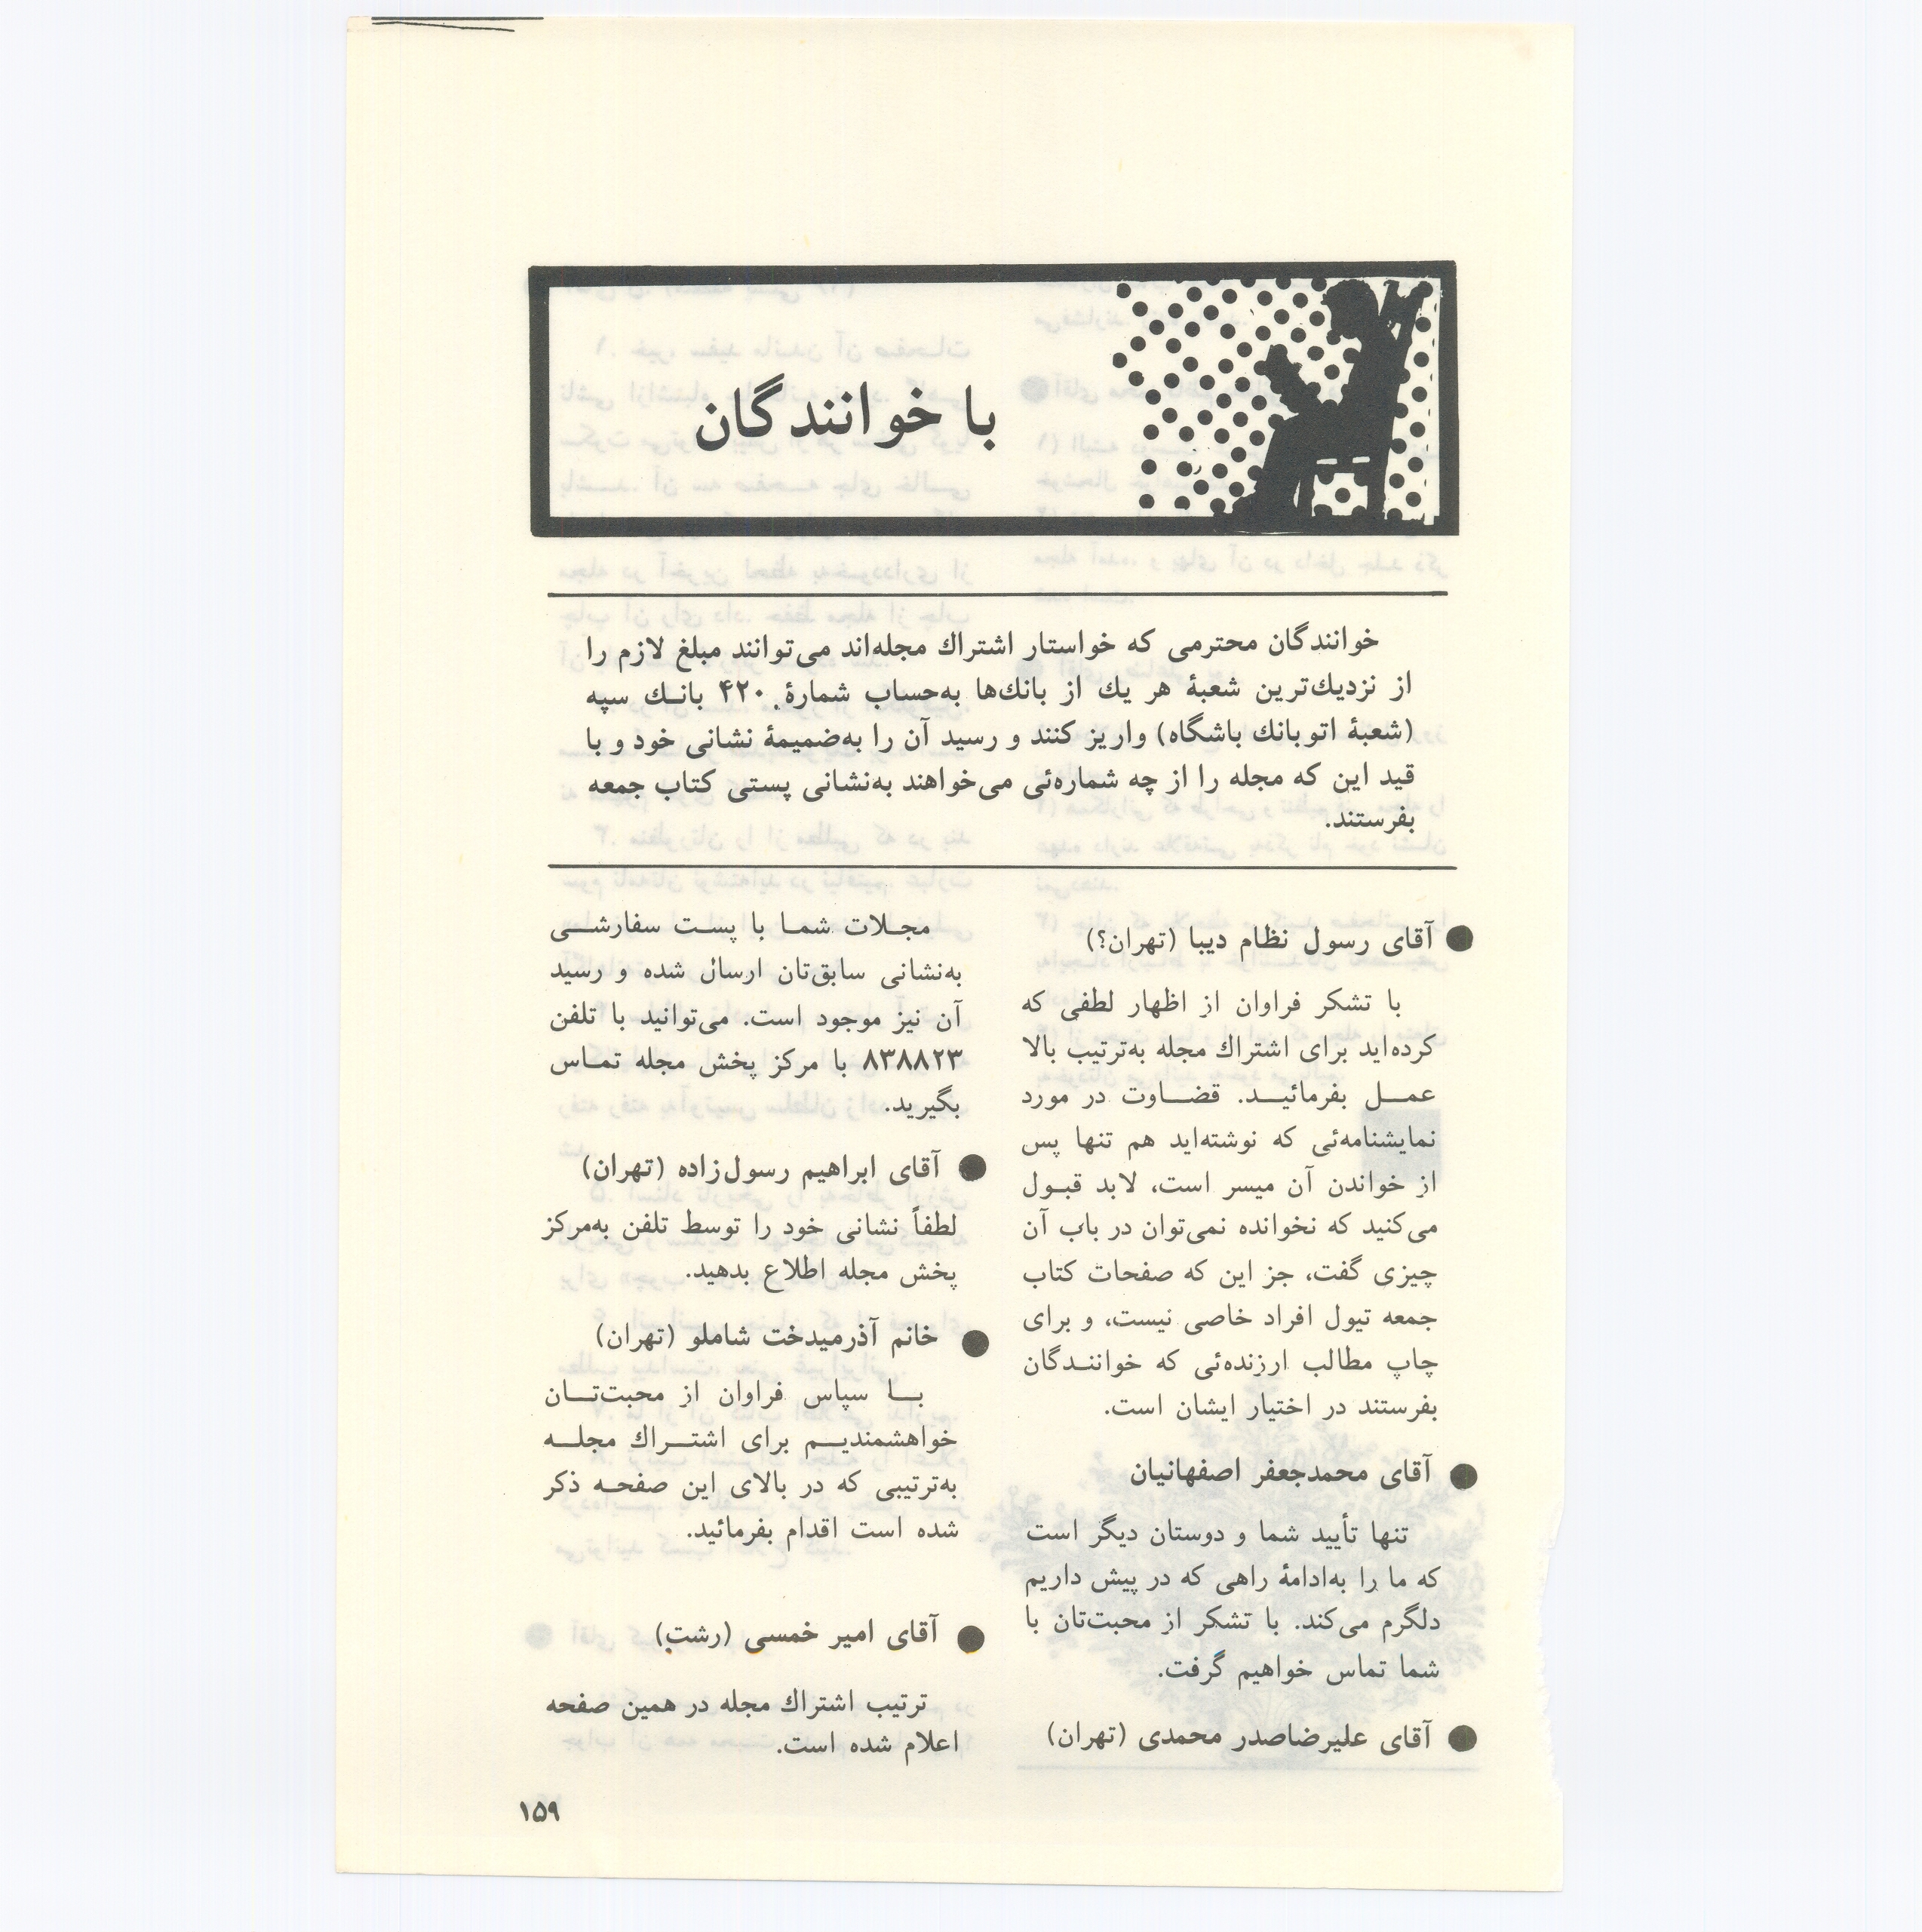 با خوانندگان
خوانندگان محترمی که خواستار اشتراك مجله‌اند می‌توانند مبلغ لازم را
از نزدیك‌ترین شعبهٔ هر یك از بانك‌ها به‌حساب شمارهٔ ۴۲۰ بانـك سپه
(شعبهٔ اتوبانك باشگاه) واریز کنند و رسید آن را به‌ضمیمهٔ نشانی خود و با
قید این که مجله را از چه شماره‌ئی می‌خواهند به‌نشانی پستی کتاب جمعه
بفرستند.
● آقای رسول نظام دیبا (تهران؟)
با تشکر فراوان از اظهار لطفی که
کرده‌اید برای اشتراك مجله به‌ترتیب بالا
عمـــل بفرمائیـــد. قضـــاوت در مورد
نمایشنامه‌ئی که نوشته‌اید هم تنها پس
از خواندن آن میسر است، لابد قبـول
می‌کنید که نخوانده نمی‌توان در باب آن
چیزی گفت، جز این که صفحات کتاب
جمعه تیول افراد خاصی نیست، و برای
چاپ مطالب ارزنده‌ئی که خواننـدگان
بفرستند در اختیار ایشان است.
● آقای محمدجعفر اصفهانیان
تنها تأیید شما و دوستان دیگر است
که ما را به‌ادامهٔ راهی که در پیش داریم
دلگرم می‌کند. با تشکر از محبت‌تان با
شما تماس خواهیم گرفت.
● آقای علیرضاصدر محمدی (تهران)
مجـلات شمـا با پسـت سفارشـــی
به‌نشانی سابق‌تان ارسال شده و رسید
آن نیز موجود است. می‌توانید با تلفن
۸۳۸۸۲۳ با مرکز پخش مجله تمـاس
بگیرید.
● آقای ابراهیم رسول‌زاده (تهران)
لطفاً نشانی خود را توسط تلفن به‌مرکز
پخش مجله اطلاع بدهید.
● خانم آذرمیدخت شاملو (تهران)
بـــا سپاس فراوان از محبت‌تـــان
خواهشمندیـــم برای اشتـــراك مجلـــه
به‌ترتیبی که در بالای این صفحـه ذکر
شده است اقدام بفرمائید.
● آقای امیر خمسی (رشت)
ترتیب اشتراك مجله در همین صفحه
اعلام شده است.
۱۵۹